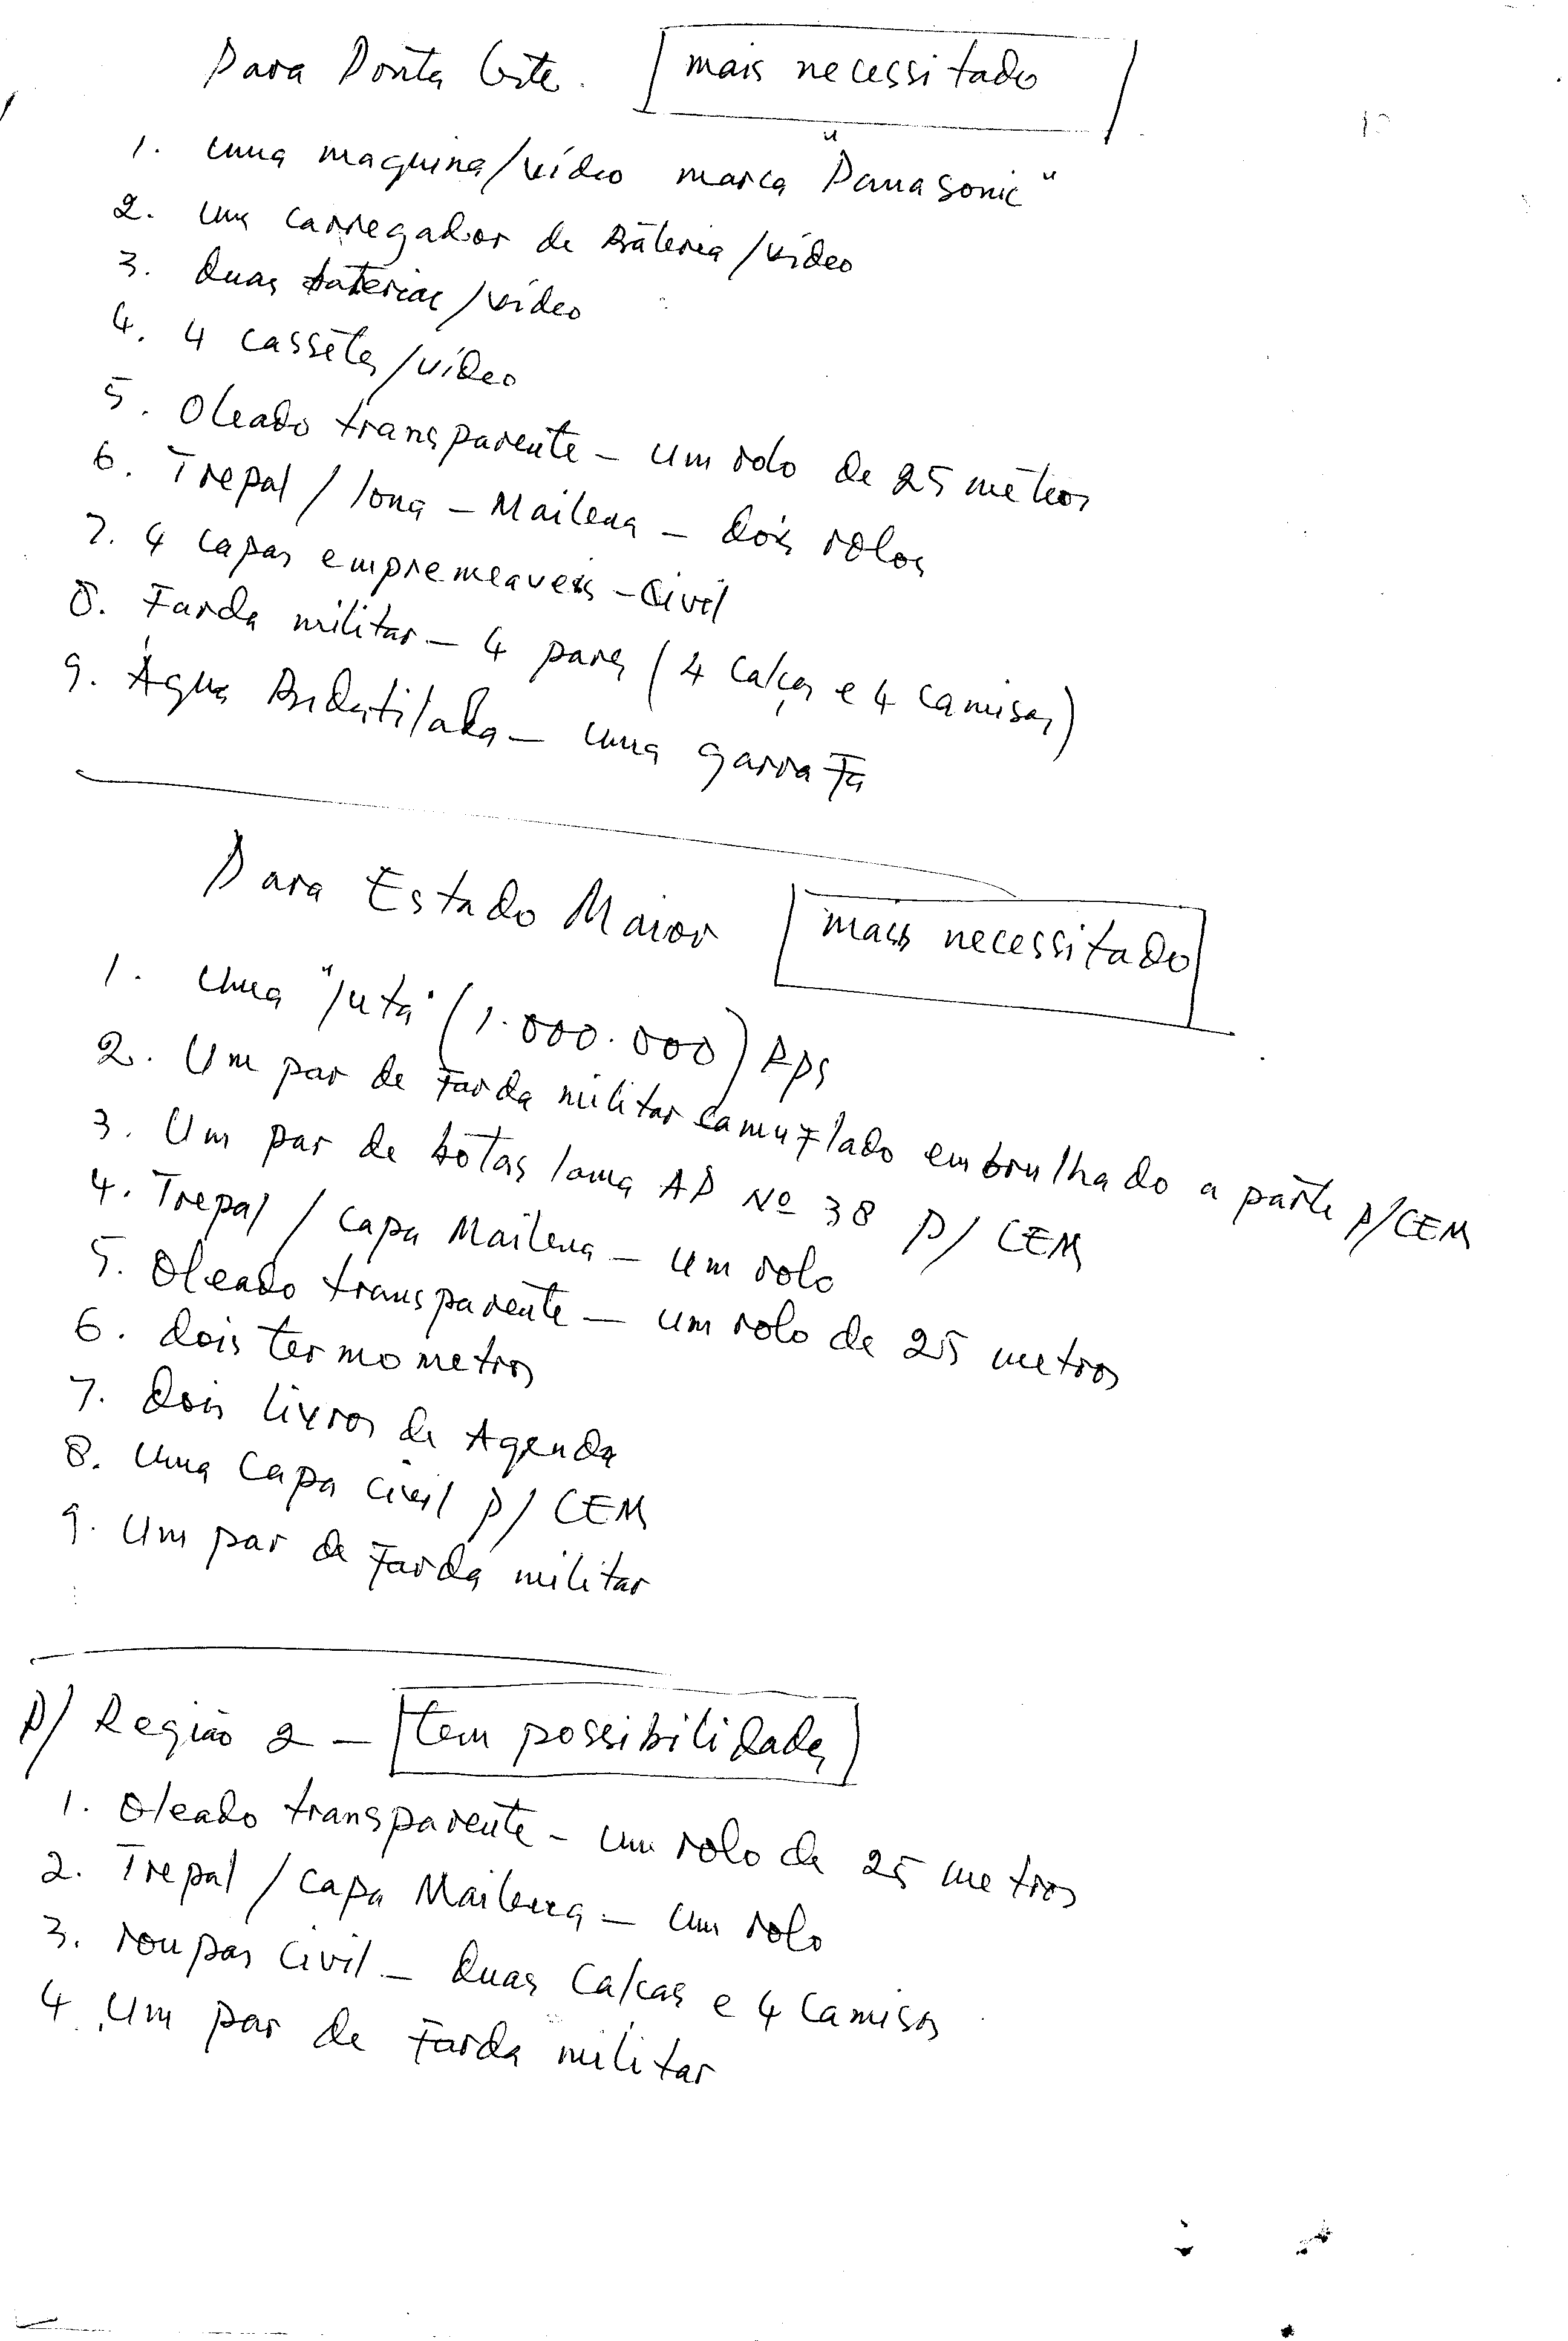 Para Ponta Leste. mais necessitado
1. uma maquina/vídeo marca "Panasonic"
2. um carregador de Bateria/vídeo
3. duas baterias/vídeo
4. 4 cassetes/vídeo
5. Oleado transparente - um rolo de 25 metros
6. Trepal/lona - Mailena - dois rolos
7. 4 capas empremeaveis - civil
8. Farda militar - 4 pares (4 calças e 4 camisas)
9. Água Bidestilada - uma garrafa
Para Estado Maior mais necessitado
1. Uma "juta" (1.000.000) Rps
2. Um par de Farda militar camuflado embrulhado a parte p/CEM
3. Um par de botas lona AP Nº 38 P/ CEM
4. Trepal / capa Mailena - um rolo
5. Oleado transparente - um rolo de 25 metros
6. dois termometros
7. dois livros de Agenda
8. uma capa civil p/ CEM
9. Um par de Farda militar
P/ Região 2 - tem possibilidades
1. Oleado transparente - um rolo de 25 metros
2. Trepal / capa Mailena - um rolo
3. roupas civil - duas calcas e 4 camisas
4. Um par de Farda militar